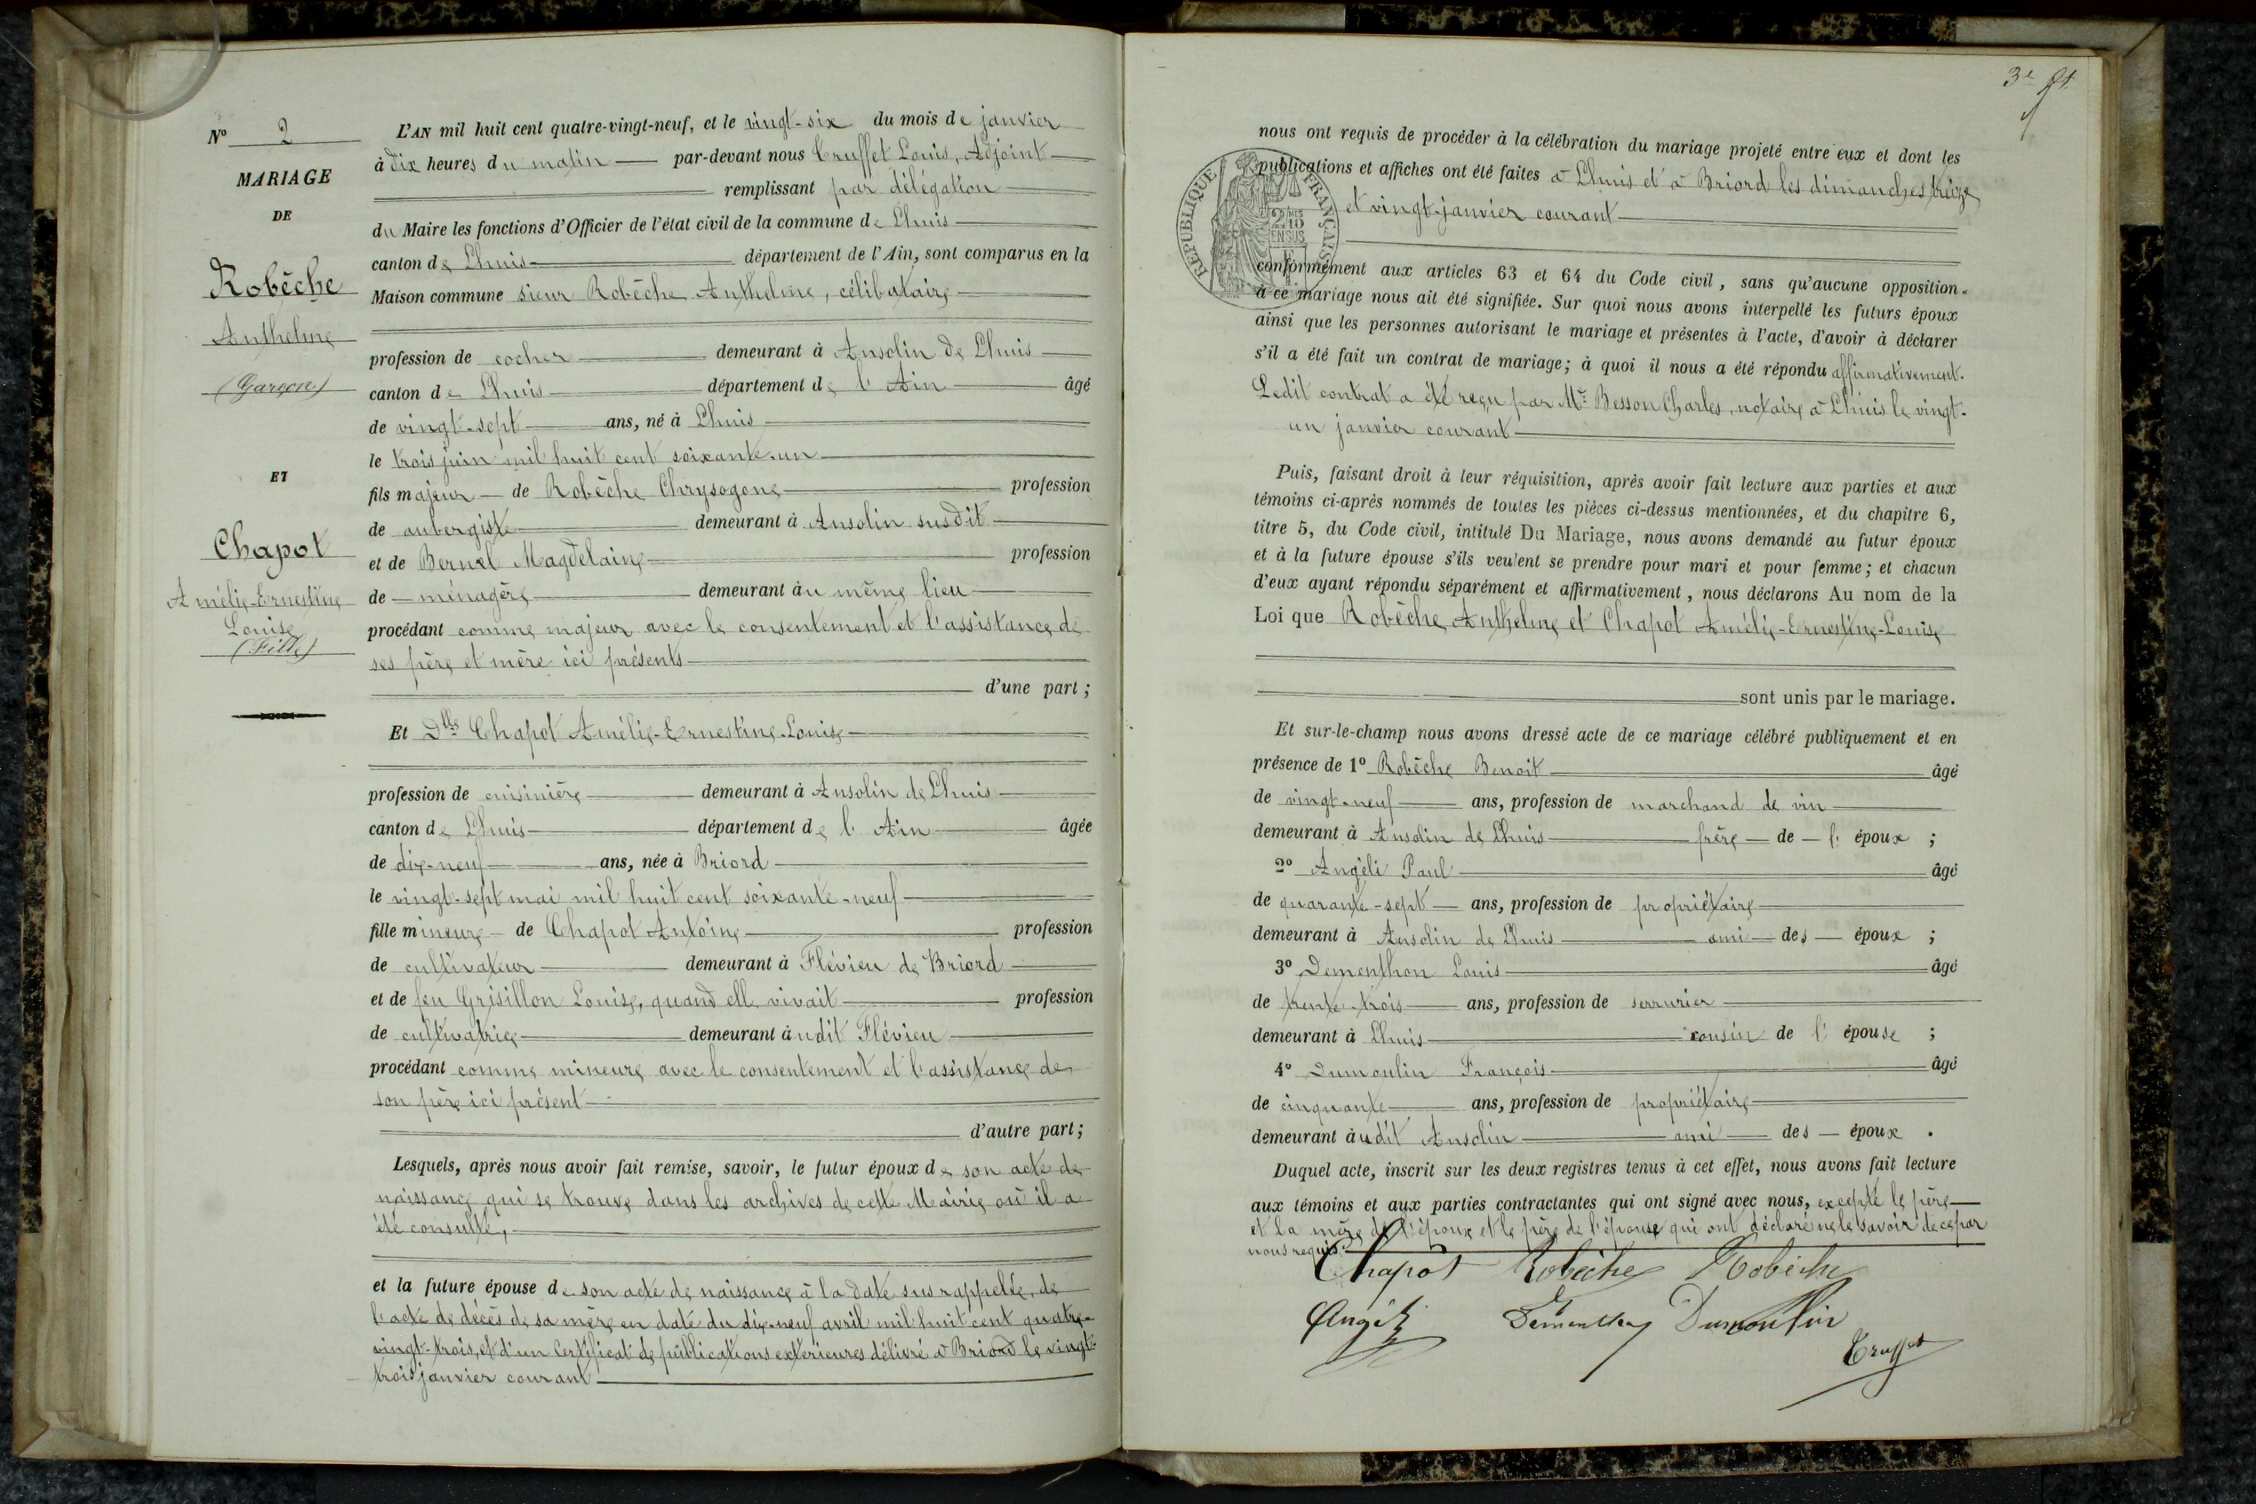 N° 2
MARIAGE
DE
Robèche
Anthelme
(Garçon)
ET
Chapot
Amélie-Ernestine
Louise
(Fille)
L'AN mil huit cent quatre-vingt-neuf, et le vingt-six du mois de janvier
à dix heures du matin par-devant nous Truffet Louis, Adjoint
remplissant par délégation
du Maire les fonctions d'Officier de l'état civil de la commune de Lhuis
canton de Lhuis département de l'Ain, sont comparus en la
Maison commune sieur Robèche Anthelme, célibataire
profession de cocher demeurant à Ansolin de Lhuis
canton de Lhuis département de l'Ain âgé
de vingt-sept ans, né à Lhuis
le trois juin mil huit cent soixante-un
fils majeur de Robèche Chrysogone profession
de aubergiste demeurant à Ansolin susdit
et de Bernel Magdelaine profession
de ménagère demeurant au même lieu
procédant comme majeur avec le consentement et l'assistance de
ses père et mère ici présents
d'une part;
Et Dlle Chapot Amélie-Ernestine-Louise
profession de cuisinière demeurant à Ansolin de Lhuis
canton de Lhuis département de l'Ain âgée
de dix-neuf ans, née à Briord
le vingt-sept mai mil huit cent soixante-neuf
fille mineure de Chapot Antoine profession
de cultivateur demeurant à Flévieu de Briord
et de feu Grisillon Louise, quand elle vivait profession
de cultivatrice demeurant audit Flévieu
procédant comme mineure avec le consentement et l'assistance de
son père ici présent
d'autre part;
Lesquels, après nous avoir fait remise, savoir, le futur époux de son acte de
naissance qui se trouve dans les archives de cette Mairie où il a
été consulté,
et la future épouse de son acte de naissance à la date sus rappelée, de
l'acte de décès de sa mère en date du dix-neuf avril mil huit cent quatre-
vingt-trois, et d'un Certificat de publications extérieures délivré à Briord le vingt-
trois janvier courant
3e ft
nous ont requis de procéder à la célébration du mariage projeté entre eux et dont les
publications et affiches ont été faites à Lhuis et à Briord les dimanches treize
et vingt janvier courant
RÉPUBLIQUE FRANÇAISE
conformément aux articles 63 et 64 du Code civil, sans qu'aucune opposition
à ce mariage nous ait été signifiée. Sur quoi nous avons interpellé les futurs époux
ainsi que les personnes autorisant le mariage et présentes à l'acte, d'avoir à déclarer
s'il a été fait un contrat de mariage; à quoi il nous a été répondu affirmativement.
Ledit contrat a été reçu par Me Besson Charles, notaire à Lhuis le vingt-
un janvier courant
Puis, faisant droit à leur réquisition, après avoir fait lecture aux parties et aux
témoins ci-après nommés de toutes les pièces ci-dessus mentionnées, et du chapitre 6,
titre 5, du Code civil, intitulé Du Mariage, nous avons demandé au futur époux
et à la future épouse s'ils veulent se prendre pour mari et pour femme; et chacun
d'eux ayant répondu séparément et affirmativement, nous déclarons Au nom de la
Loi que Robèche Anthelme et Chapot Amélie-Ernestine-Louise
sont unis par le mariage.
Et sur-le-champ nous avons dressé acte de ce mariage célébré publiquement et en
présence de 1° Robèche Benoit âgé
de vingt-neuf ans, profession de marchand de vin
demeurant à Ansolin de Lhuis frère de l'époux ;
2° Angéli Paul âgé
de quarante-sept ans, profession de propriétaire
demeurant à Ansolin de Lhuis ami des époux ;
3° Dementhon Louis âgé
de trente-trois ans, profession de serrurier
demeurant à Lhuis cousin de l'épouse ;
4° Dumoulin François âgé
de cinquante ans, profession de propriétaire
demeurant audit Ansolin ami des époux .
Duquel acte, inscrit sur les deux registres tenus à cet effet, nous avons fait lecture
aux témoins et aux parties contractantes qui ont signé avec nous, excepté le père
et la mère de l'époux et le père de l'épouse qui ont déclaré ne le savoir de ce par
nous requis.
Chapot Robèche Robèche
Angéli Dementhon Dumoulin
Truffet